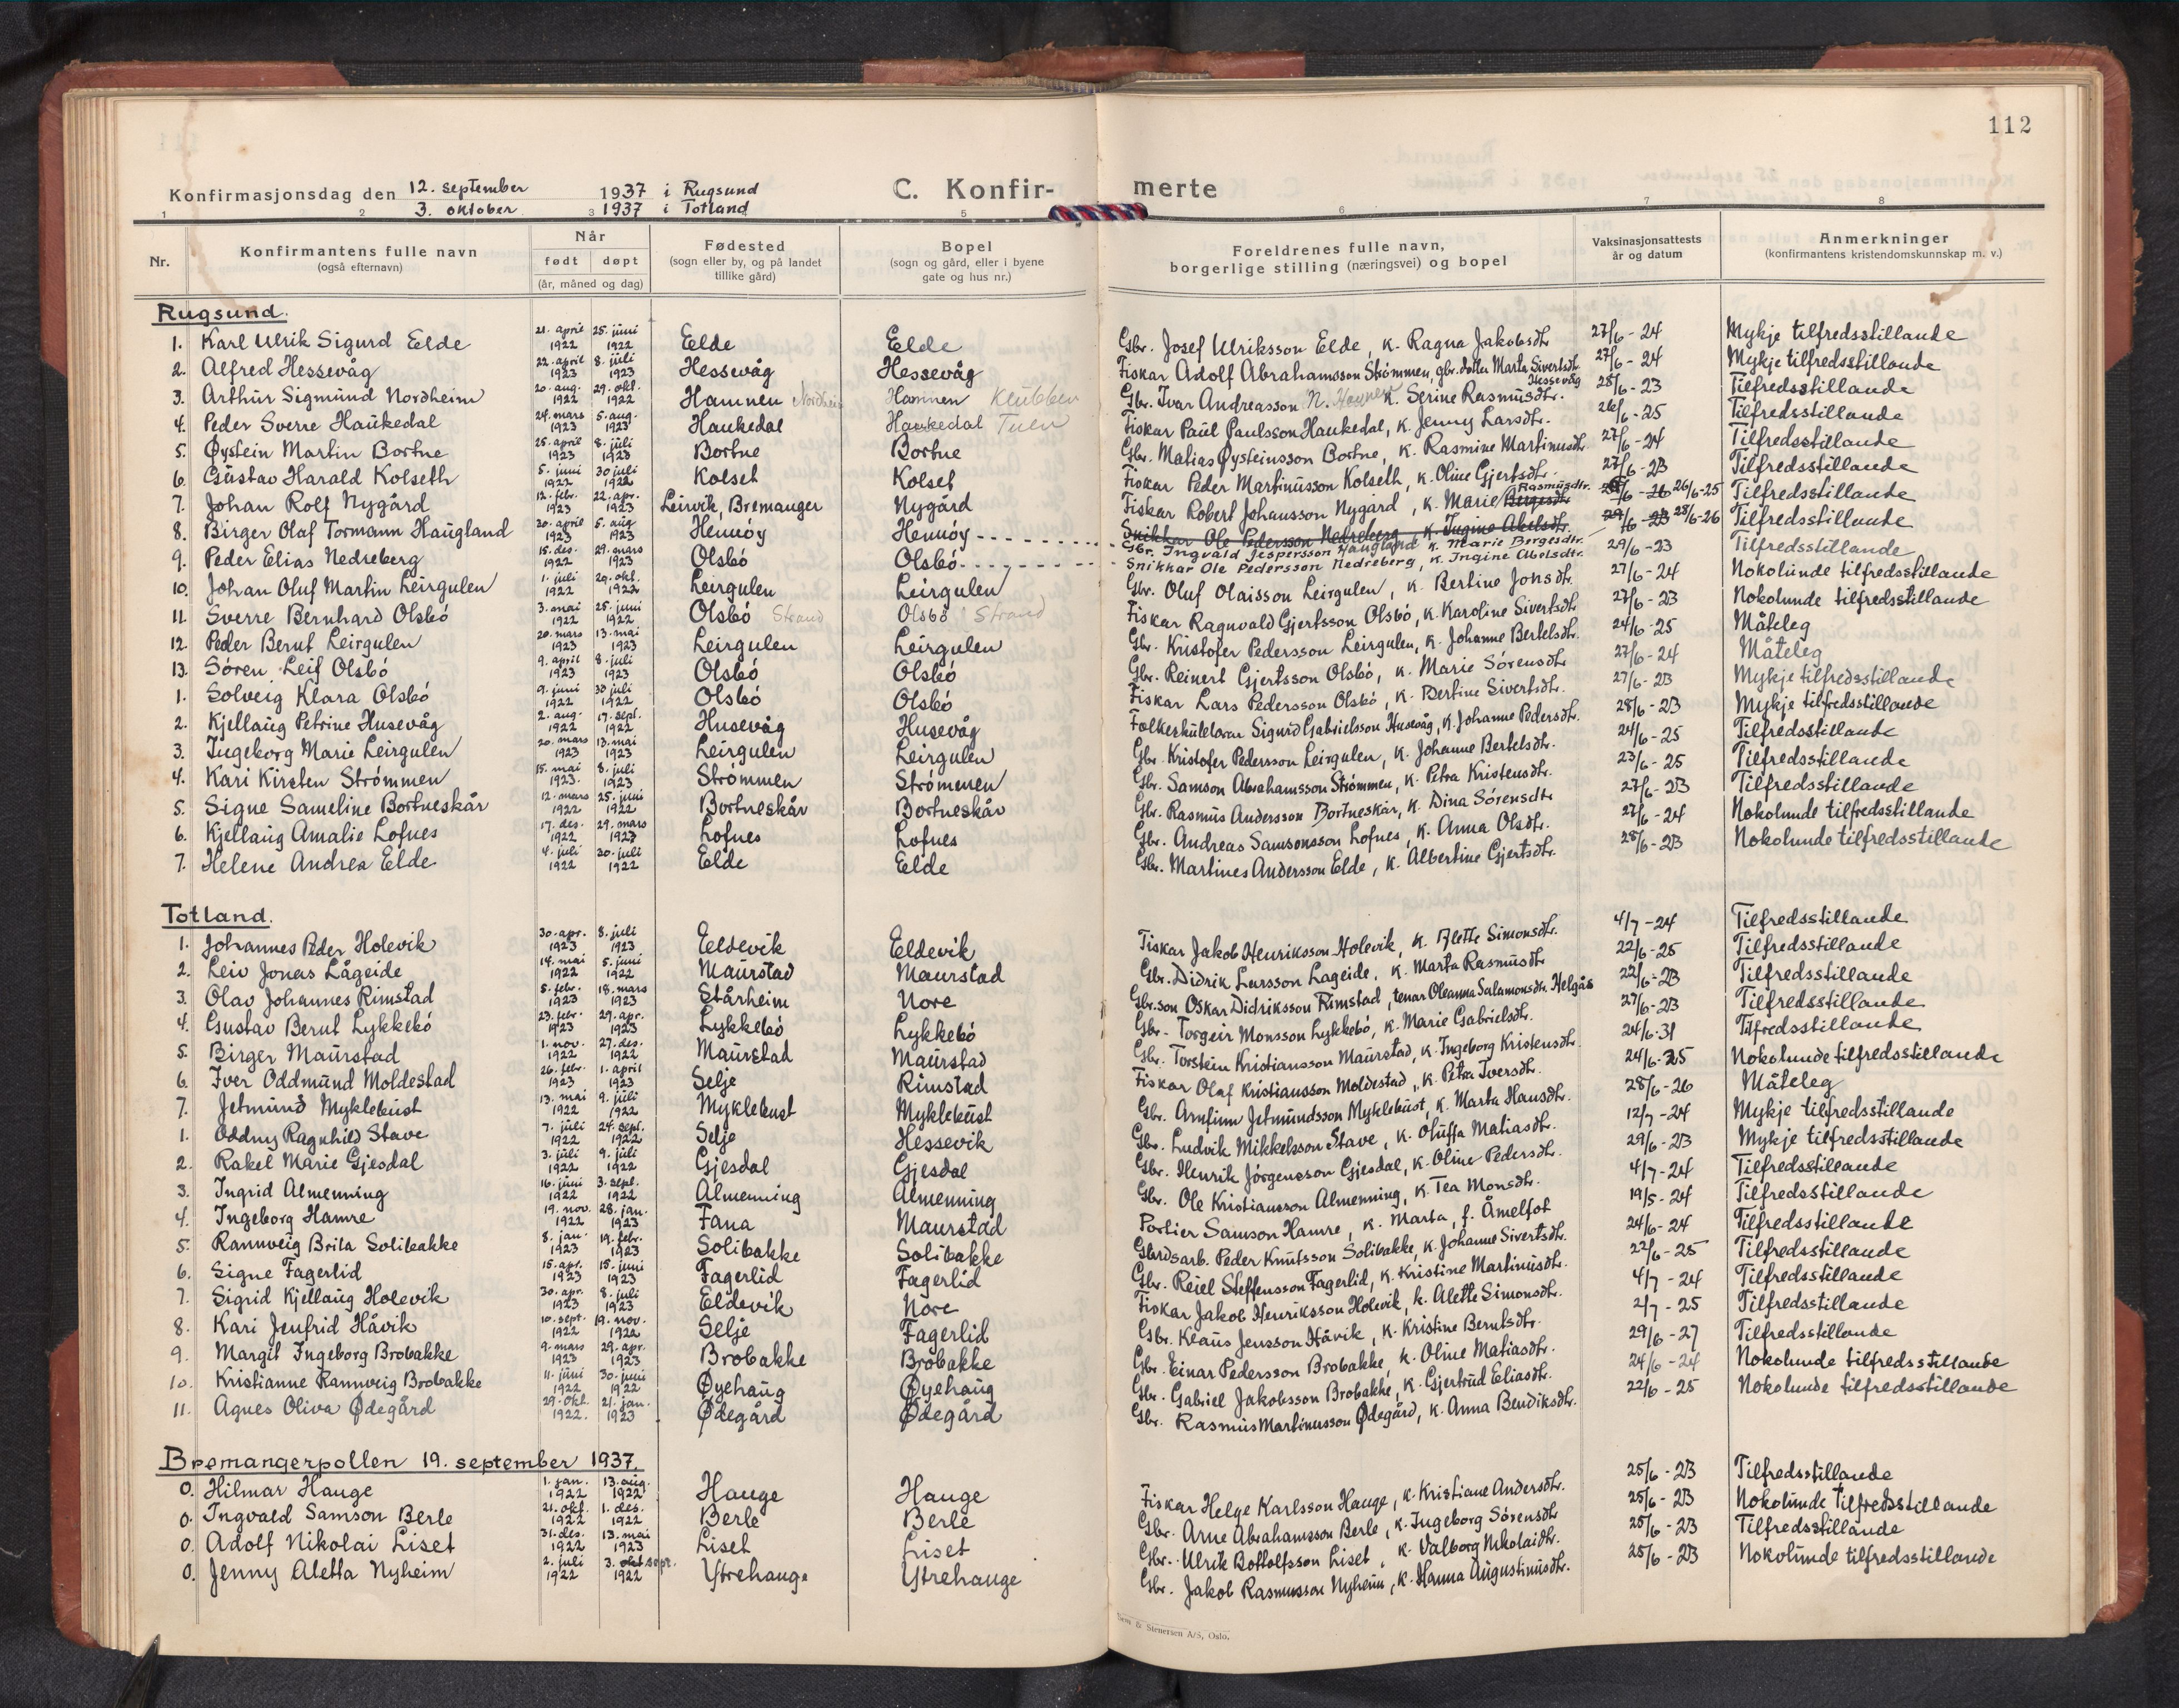 112
Konfirmasjonsdag den 12. september 1937 i Rugsund
3. oktober 1937 i Totland
C. Konfir- merte
1 2 3 5 6 7 8
Nr. Konfirmantens fulle navn (også efternavn) Når født døpt (år, måned og dag) Fødested (sogn eller by, og på landet tillike gård) Bopel (sogn og gård, eller i byene gate og hus nr.) Foreldrenes fulle navn, borgerlige stilling (næringsvei) og bopel Vaksinasjonsattests år og datum Anmerkninger (konfirmantens kristendomskunnskap m. v.)
Rugsund.
1. Karl Ulrik Sigurd Eelde 21. april 1922 25. juni 1922 Eelde Eelde Gbr. Josef Ulriksson Eelde, k. Ragna Jakobsdtr. 27/6 - 24 Mykje tilfredsstillande
2. Alfred Hessevåg 22. april 1923 8. juli 1923 Hessevåg Hessevåg Fiskar Adolf Abrahamsson Strømmen, gbr. dotter Marta Sivertsdtr. Hessevåg 27/6 - 24 Mykje tilfredsstillande
3. Arthur Sigmund Nordheim 20. aug. 1922 29. okt. 1922 Hamnen Nordheim Hamnen Klubben Gbr. Ivar Andreasson N. Hamnen K. Serine Rasmusdtr. 28/6 - 23 Tilfredsstillande
4. Peder Sverre Haukedal 24. mars 1923 5. aug. 1923 Haukedal Haukedal Tuen Fiskar Paul Paulsson Haukedal, k. Jenny Larsdtr. 26/6 - 25 Tilfredsstillande
5. Øystein Martin Bortne 25. april 1923 8. juli 1923 Bortne Bortne Gbr. Matias Øysteinsson Bortne, k. Rasmine Martinusdtr. 27/6 - 24 Tilfredsstillande
6. Gustav Harald Kolseth 5. juni 1922 30 juli 1922 Kolset Kolset Fiskar Peder Martinusson Kolseth, k. Oline Gjertsdtr. 27/6 - 23 Tilfredsstillande
7. Johan Rolf Nygård 12. febr. 1923 22. apr. 1923 Leirvik, Bremanger Nygård Fiskar Robert Johansson Nygård, k. Marie Bergesdtr. Rasmusdtr. 26/6-25 Tilfredsstillande
8. Birger Olaf Tormann Haugland 20. april 1923 5. aug 1923 Hennøy Hennøy Snikkar Ole Pedersson Nedreberg, k. Ingine Abelsdtr. 29/6 - 23 28/6-26 Tilfredsstillande
Gbr. Ingvald Jespersson Haugland k. Marie Bergesdtr.
9. Peder Elias Nedreberg 15. des. 1922 29. mars 1923 Olsbö Olsbö Snikkar Ole Pedersson Nedreberg, k. Ingine Abelsdtr. 29/6 - 23 Tilfredsstillande
10. Johan Oluf Martin Leirgulen 1. juli 1922 29. okt. 1922 Leirgulen Leirgulen Gbr. Oluf Olaisson Leirgulen, k. Bertine Jonsdtr. 27/6 - 24 Nokolunde tilfredsstillande
11. Sverre Bernhard Olsbö 3. mai 1922 25. juni 1922 Olsbö Strand Olsbö Strand Fiskar Ragnvald Gjertsson Olsbö, k. Karoline Sivertsdtr. 27/6 - 23 Nokolunde tilfredsstillande
12. Peder Bernt Leirgulen 20. mars 1923 13. mai 1923 Leirgulen Leirgulen Gbr. Kristofer Pedersson Leirgulen, k. Johanne Bertelsdtr. 24/6 - 25 Måteleg
13. Sören Leif Olsbö 9. april 1923 8. juli 1923 Olsbö Olsbö Gbr. Reinert Gjertsson Olsbö, k. Marie Sörensdtr. 27/6 - 24 Måteleg
1. Solveig Klara Olsbö 9. juni 1922 30 juli 1922 Olsbö Olsbö Fiskar Lars Pedersson Olsbö, k. Bertine Sivertsdtr. 27/6 - 23 Mykje tilfredsstillande
2. Kjellaug Petrine Husevåg 2. aug. 1922 17. sept. 1922 Husevåg Husevåg Folkeskulelærar Sigurd Gabrielsson Husevåg, k. Johanne Pedersdtr. 28/6 - 23 Mykje tilfredsstillande
3. Ingeborg Marie Leirgulen 20. mars 1923 13. mai 1923 Leirgulen Leirgulen Gbr. Kristofer Pedersson Leirgulen, k. Johanne Bertelsdtr. 24/6 - 25 Tilfredsstillande
4. Kari Kirsten Strömmen 15. mai 1923. 8. juli 1923 Strömmen Strömmen Gbr. Samson Abrahamsson Strömmen, k. Petra Kristensdtr. 23/6 - 25 Tilfredsstillande
5. Signe Sameline Bortneskår 12. mars 1922 25. juni 1922 Bortneskår Bortneskår Gbr. Rasmus Andersson Bortneskår, k. Dina Sörensdtr 27/6 - 23 Tilfredsstillande
6. Kjellaug Amalie Lofnes 17. des. 1922 29. mars 1923 Lofnes Lofnes Gbr. Andreas Samsonsson Lofnes, k. Anna Olsdtr. 27/6 - 24 Nokolunde tilfredsstillande
7. Helene Andrea Elde 4. juli 1922 30. juli 1922 Elde Elde Gbr. Martines Andersson Elde, k. Albertine Gjertsdtr. 28/6 - 23 Nokolunde tilfredsstillande
Totland.
1. Johannes Peder Holevik 30. apr. 1923 8. juli 1923 Eeldevik Eldevik Fiskar Jakob Henriksson Holevik, k. Alette Simonsdtr. 4/7 - 24 Tilfredsstillande
2. Leiv Jonas Lågeide 14. mai 1922 5. juni 1922 Maurstad Maurstad Gbr. Didrik Larsson Lageide, k. Marta Rasmusdtr 22/6 - 25 Tilfredsstillande
3. Olav Johannes Rimstad 5. febr. 1923 18. mars 1923 Stårheim Nore Gbr.son Oskar Didriksson Rimstad, tenar Oleanna Salamonsdtr. Helgås 22/6 - 23 Tilfredsstillande
4. Gustav Bernt Lykkebö 23. febr. 1923 29. apr. 1923 Lykkebö Lykkebö Gbr. Torgeir Monsson Lykkebö, k. Marie Gabrielsdtr. 27/6 - 23 Tilfredsstillande
5. Birger Maurstad 1. nov. 1922 27. des. 1922 Maurstad Maurstad Gbr. Torstein Kristiansson Maurstad, k. Ingeborg Kristensdtr. 24/6 - 31 Tilfredsstillande
6. Iver Oddmund Moldestad 26. febr. 1923 1. april 1923 Selje Rimstad Fiskar Olaf Kristiansson Moldestad, k. Petra Iversdtr. 24/6 - 25 Nokolunde tilfredsstillande
7. Jetmund Myklebust 13. mai 1922 9. juli 1922 Myklebust Myklebust Gbr. Arnfinn Jetmundsson Myklebust, k. Marta Hansdtr. 28/6 - 26 Måteleg
1. Oddny Ragnhild Stave 7. juli 1922 24. sept. 1922 Selje Hessevik Gbr. Ludvik Mikkelsson Stave, k. Oluffa Matiasdtr. 12/7 - 24 Mykje tilfredsstillande
2. Rakel Marie Gjesdal 3. juli 1922 9. juli 1922 Gjesdal Gjesdal Gbr. Henrik Jörgensson Gjesdal, k. Oline Pedersdtr. 29/6 - 23 Mykje tilfredsstillande
3. Ingrid Almenning 16. juni 1922 3. sept. 1922 Almenning Almenning Gbr. Ole Kristiansson Almenning, k. Tea Monsdtr. 4/7 - 24 Tilfredsstillande
4. Ingeborg Hamre 19. nov. 1922 28. jan. 1923 Fana Maurstad Portier Samson Hamre, k. Marta, f. Åmelfot 19/5 - 24 Tilfredsstillande
5. Rannveig Brita Solibakke 8. jan. 1923 19. febr. 1923 Solibakke Solibakke Gbrdsarb. Peder Knutsson Solibakke, k. Johanne Sivertsdtr. 24/6 - 24 Tilfredsstillande
6. Signe Fagerlid 15. apr. 1923 15. juni 1923 Fagerlid Fagerlid Gbr. Reiel Steffensson Fagerlid, k. Kristine Martinusdtr. 22/6 - 25 Tilfredsstillande
7. Sigrid Kjellaug Holevik 30. apr. 1923 8. juli 1923 Eldevik Nore Fiskar Jakob Henriksson Holevik, k. Alette Simonsdtr. 4/7 - 24 Tilfredsstillande
8. Kari Jenfrid Håvik 10. sept. 1922 19. nov. 1922 Selje Fagerlid Gbr. Klaus Jensson Håvik, k. Kristine Berntsdtr. 2/7 - 25 Tilfredsstillande
9. Margit Ingeborg Brobakke 9. mars 1923 29. apr. 1923 Brobakke Brobakke Gbr. Einar Pedersson Brobakke, k. Oline Matiasdtr. 29/6 - 27 Tilfredsstillande
10. Kristianne Rannveig Brobakke 11. juni 1922 30. juni 1922 Øyehaug Øyehaug Gbr. Gabriel Jakobsson Brobakke, k. Gjertrud Eliasdtr. 24/6 - 24 Nokolunde tilfredsstillande
11. Agnes Oliva Ødegård 29. okt. 1922. 21. jan. 1923 Ødegård Ødegård Gbr. Rasmus Martinusson Ødegård, k. Anna Bendiksdtr. 22/6 - 25 Nokolunde tilfredsstillande
Bremangerpollen 19. september 1937.
0. Hilmar Hauge 1. jan. 1922 13. aug. 1922 Hauge Hauge Fiskar Helge Karlsson Hauge, k. Kristiane Andersdtr. 25/6 - 23 Tilfredsstillande
0. Ingvald Samson Berle 21. okt. 1922 1. des. 1922 Berle Berle Gbr. Arne Abrahamsson Berle, k. Ingeborg Sörensdtr 25/6 - 23 Nokolunde tilfredsstillande
0. Adolf Nikolai Liset 31. des. 1922 13. mai 1923 Liset Liset Gbr. Ulrik Bottolfsson Liset, k. Valborg Nikolaidtr. 25/6 - 23 Tilfredsstillande
0. Jenny Aletta Nyheim 2. juli 1922 3. okt sept. 1922 Ytrehauge Ytrehauge Gbr. Jakob Rasmusson Nyheim, k. Hanna Augustinusdtr. 25/6 - 23 Nokolunde tilfredsstillande
& Stenersen A/S, Oslo.